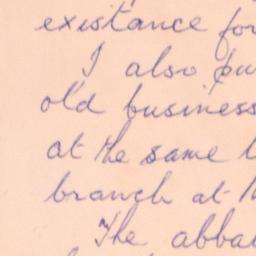 existance for
I also pu
old business
at the same
branch at
The abba